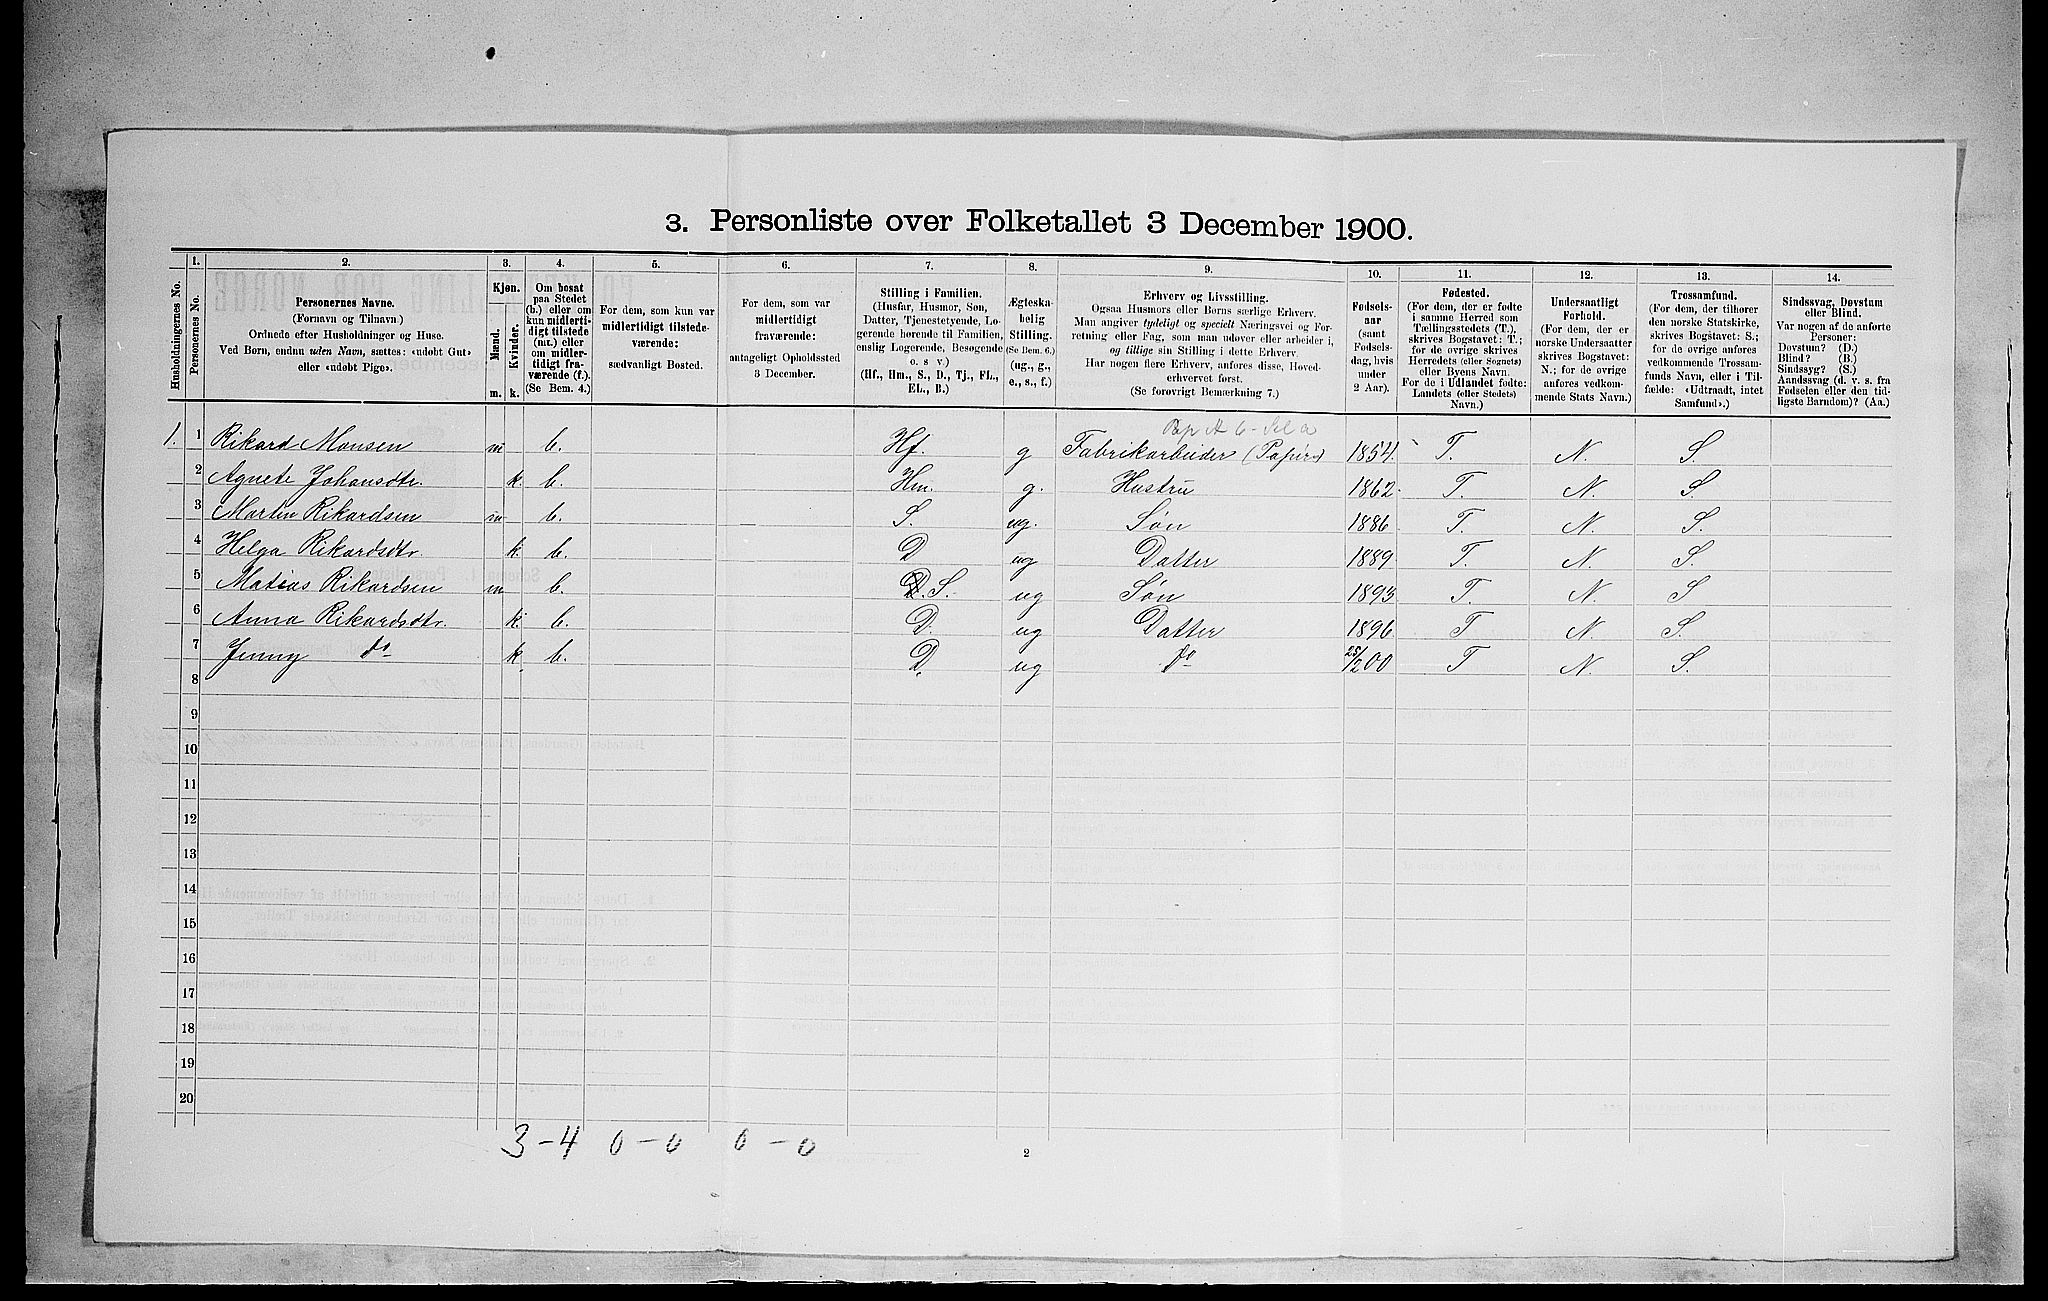 3. Personliste over Folketallet 3 December 1900.
Husholdningernes No.
1.
Personernes No.
2.
Personernes Navne.
(Fornavn og Tilnavn)
Ordnede efter Husholdninger og Huse.
Ved Børn, endnu uden Navn, sættes: «udøbt Gut»
eller «udøbt Pige».
3.
Kjøn.
Mænd.
Kvinder.
m. k.
4.
Om bosat
paa Stedet
(b.) eller om
kun midlerti-
digt tilstede
(mt.) eller
om midler-
tidigt fra-
værende (f.)
(Se Bem. 4.)
5.
For dem, som kun var
midlertidigt tilstede-
værende:
sædvanligt Bosted.
6.
For dem, som var
midlertidigt
fraværende:
antageligt Opholdssted
3 December.
7.
Stilling i Familien.
(Husfar, Husmor, Søn,
Datter, Tjenestetyende, Lo-
gerende hørende til Familien,
enslig Logerende, Besøgende
o. s. v.)
(Hf., Hm., S., D., Tj., FL.,
EL., B.)
8.
Ægteska-
belig
Stilling.
(Se Bem. 6.)
(ug., g.,
e., s., f.)
9.
Erhverv og Livsstilling.
Ogsaa Husmors eller Børns særlige Erhverv.
Man angiver tydeligt og specielt Næringsvei og For-
retning eller Fag, som man udøver eller arbeider i,
og tillige sin Stilling i dette Erhverv.
Har nogen flere Erhverv, anføres disse, Hoved-
erhvervet først.
(Se forøvrigt Bemærkning 7.)
10.
Fødsels-
aar
(samt
Fødsels-
dag, hvis
under
2 Aar).
11.
Fødested.
(For dem, der er fødte
i samme Herred som
Tællingsstedets (T.),
skrives Bogstavet: T.;
for de øvrige skrives
Herredets (eller Sognets)
eller Byens Navn.
For de i Udlandet fødte:
Landets (eller Stedets)
Navn.)
12.
Undersaatligt
Forhold.
(For dem, der er
norske Undersaatter
skrives Bogstavet:
N.; for de øvrige
anføres vedkom-
mende Stats Navn.)
13.
Trossamfund.
(For dem, der tilhører
den norske Statskirke,
skrives Bogstavet: S.;
for de øvrige anføres
vedkommende Trossam-
funds Navn, eller i Til-
fælde: «Udtraadt, intet
Samfund».)
14.
Sindssvag, Døvstum
eller Blind.
Var nogen af de anførte
Personer:
Døvstum? (D.)
Blind? (B.)
Sindssyg? (S.)
Aandssvag (d. v. s. fra
Fødselen eller den tid-
ligste Barndom)? (Aa.)
1. 1 Rikard Monsen m b. Hf. g Fabrikarbeider (Papir) 1854. T. N. S.
2 Agnete Johansdtr. k. b. Hm. g. Hustru 1862. T. N. S.
3 Martin Rikardsen m b. S. ug. Søn 1886 T. N. S.
4 Helga Rikardsdtr. k. b. D ug Datter 1889 T. N. S.
5 Matias Rikardsen m b. D. S. ug Søn 1893 T. N. S
6 Anna Rikardsdtr. k. b. D. ug Datter 1896 T N. S.
7 Jenny do k. b. D. ug do 25/2 00 T N. S.
8
9
10
11
12
13
14
15
16
17
18
19
20
3-4 0-0 0-0
2